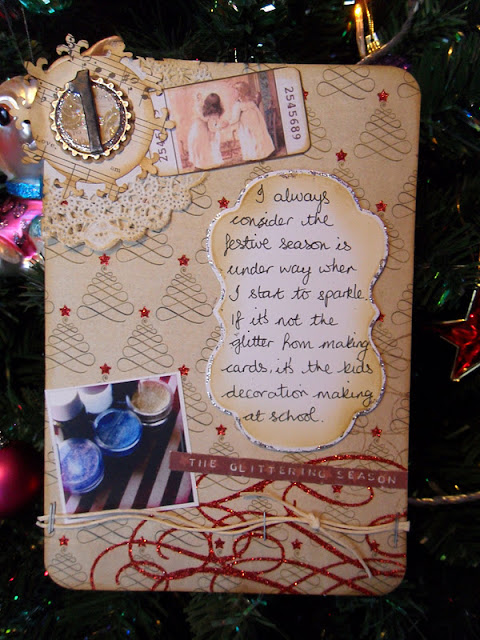 1
2545689
2545689
I always
consider the
festive season is
under way when
I start to sparkle.
If it's not the
glitter from making
cards, it's the kids
decoration making
at school.
THE GLITTERING SEASON